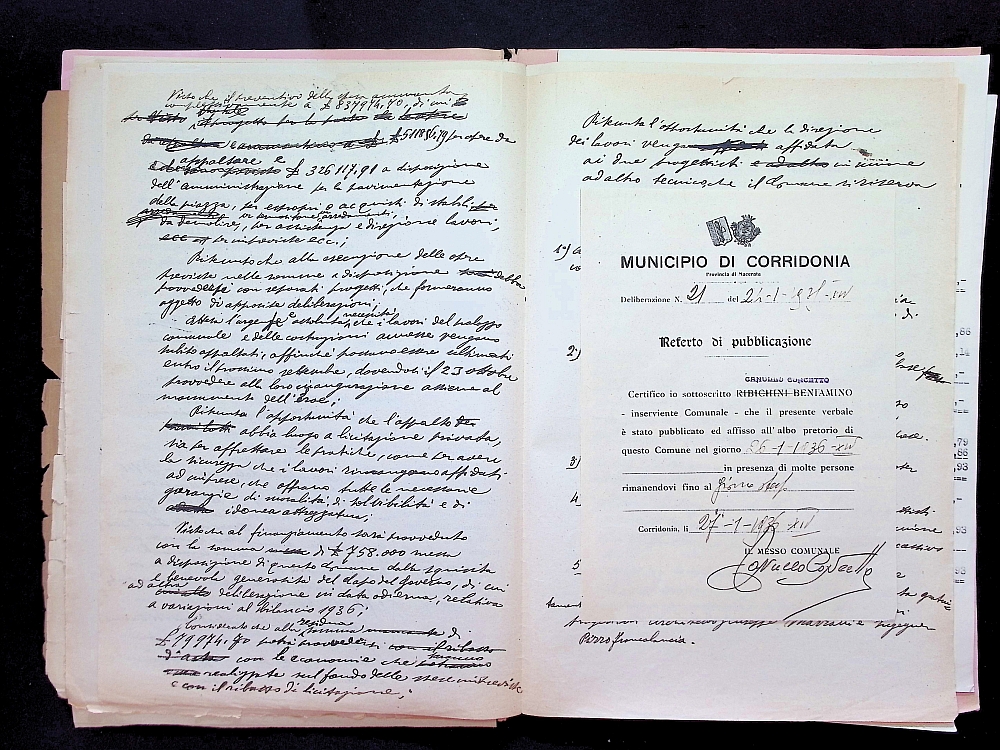 Visto che il preventivo delle opere ammontava
complessivamente a £ 837974.70, di cui
£ 511856,79 per opere da
appaltare e
£ 326117.91 a disposizione
dell'amministrazione per la pavimentazione
della piazza, per espropri e acquisti di stabili
da demolire, per assistenza e direzione lavori,
per imprevisti ecc.;
Ritenuto che alla esecuzione delle opere
previste nelle somme a disposizione debba
provvedersi con separati progetti, che formeranno
oggetto di apposite deliberazioni;
Attesa l'urgente e assoluta necessità che i lavori del palazzo
comunale e delle costruzioni annesse vengano
subito appaltati, affinché possano essere ultimati
entro il prossimo settembre, dovendosi il 23 ottobre
provvedere alla loro inaugurazione assieme al
monumento dell'Eroe;
Ritenuta l'opportunità che l'appalto
abbia luogo a licitazione privata,
sia per affrettare le pratiche, come per avere
la sicurezza che i lavori rimangano affidati
ad imprese, che offrano tutte le necessarie
garanzie di moralità, di solvibilità e di
idonea attrezzatura;
Visto che al finanziamento sarà provveduto
con la somma di £ 758.000 messa
a disposizione di questo Comune dalla squisita
e benevola generosità del Capo del Governo, di cui
ad altra deliberazione in data odierna, relativa
a variazioni al bilancio 1936;
Considerato che alla residua somma di
£ 79974.70 potrà provvedersi
con le economie che saranno
realizzate sul fondo delle
e con il ribasso di licitazione;
Ritenuta l'opportunità che la direzione
dei lavori venga affidata
ai due progettisti in unione
ad altro tecnico che il Comune si riserva
1°)
2°)
3)
4
5
MUNICIPIO DI CORRIDONIA
Provincia di Macerata
Deliberazione N. 21 del 24-1-1936-XIV
Referto di pubblicazione
CANULLO CONCETTO
Certifico io sottoscritto RIBICHINI BENIAMINO
- inserviente Comunale - che il presente verbale
è stato pubblicato ed affisso all'albo pretorio di
questo Comune nel giorno 26-1-1936-XIV
in presenza di molte persone
rimanendovi fino al giorno stesso
Corridonia, li 27-1-1936 XIV
IL MESSO COMUNALE
Canullo Concetto
ingegner
Pirro Francalancia.